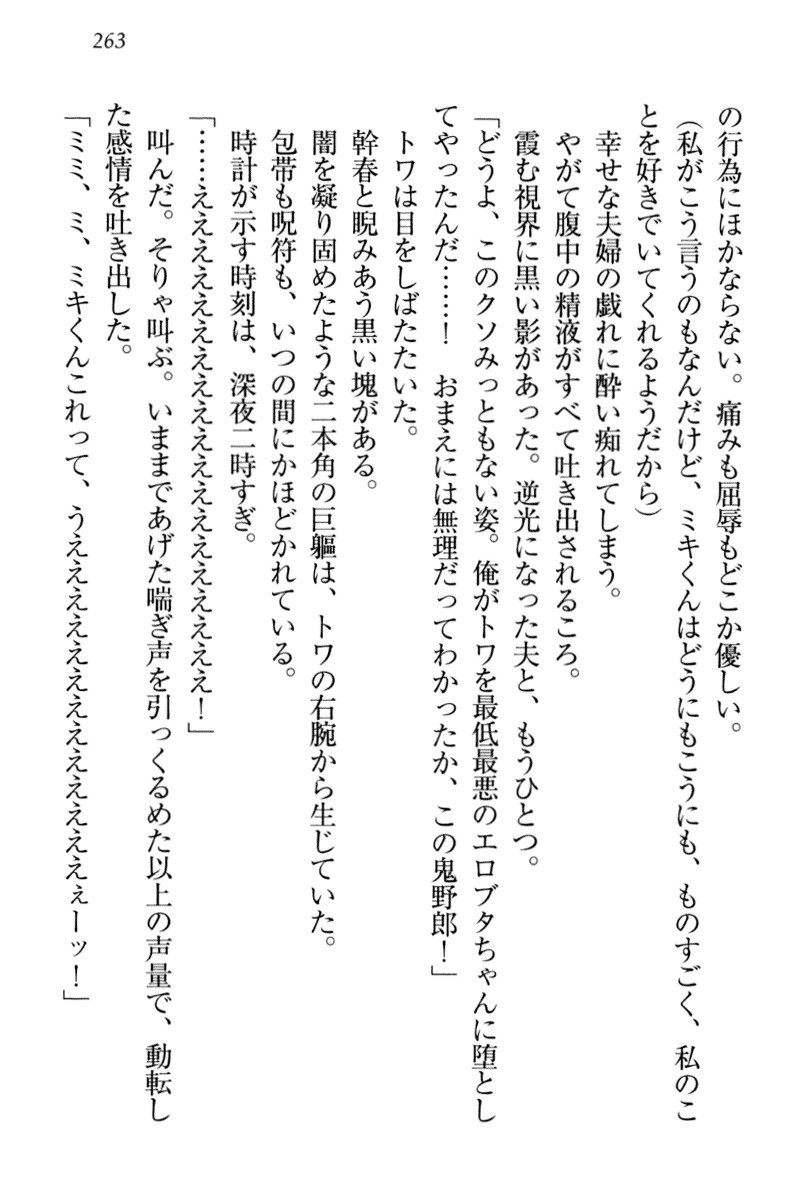 263
の行為にほかならない。痛みも屈辱もどこか優しい。
（私がこう言うのもなんだけど、ミキくんはどうにもこうにも、ものすごく、私のこ
とを好きでいてくれるようだから）
幸せな夫婦の戯れに酔い痴れてしまう。
やがて腹中の精液がすべて吐き出されるころ。
霞む視界に黒い影があった。逆光になった夫と、もうひとつ。
「どうよ、このクソみっともない姿。俺がトワを最低最悪のエロブタちゃんに堕とし
てやったんだ……！　おまえには無理だってわかったか、この鬼野郎！」
トワは目をしばたたいた。
幹春と睨みあう黒い塊がある。
闇を凝り固めたような二本角の巨軀は、トワの右腕から生じていた。
包帯も呪符も、いつの間にかほどかれている。
時計が示す時刻は、深夜二時すぎ。
「……えええええええええええええええええええ！」
叫んだ。そりゃ叫ぶ。いままであげた喘ぎ声を引っくるめた以上の声量で、動転し
た感情を吐き出した。
「ミミ、ミ、ミキくんこれって、うええええええええええええええええぇーッ！」